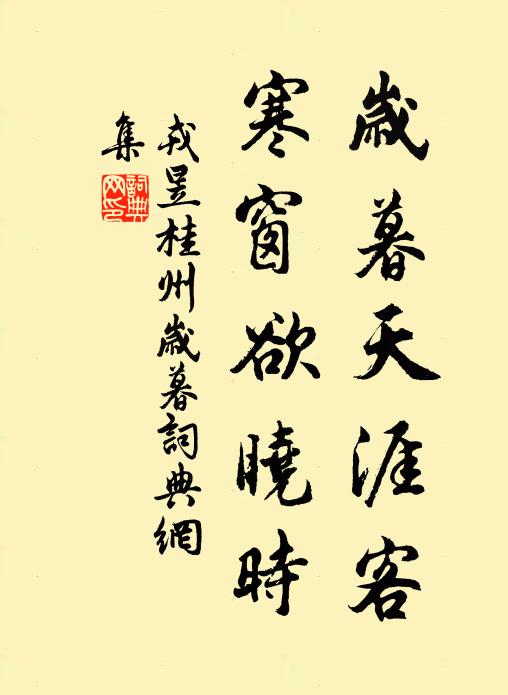 歲暮天涯客
寒窗欲曉時
戎昱桂州歲暮詞典網
集
詞典網印